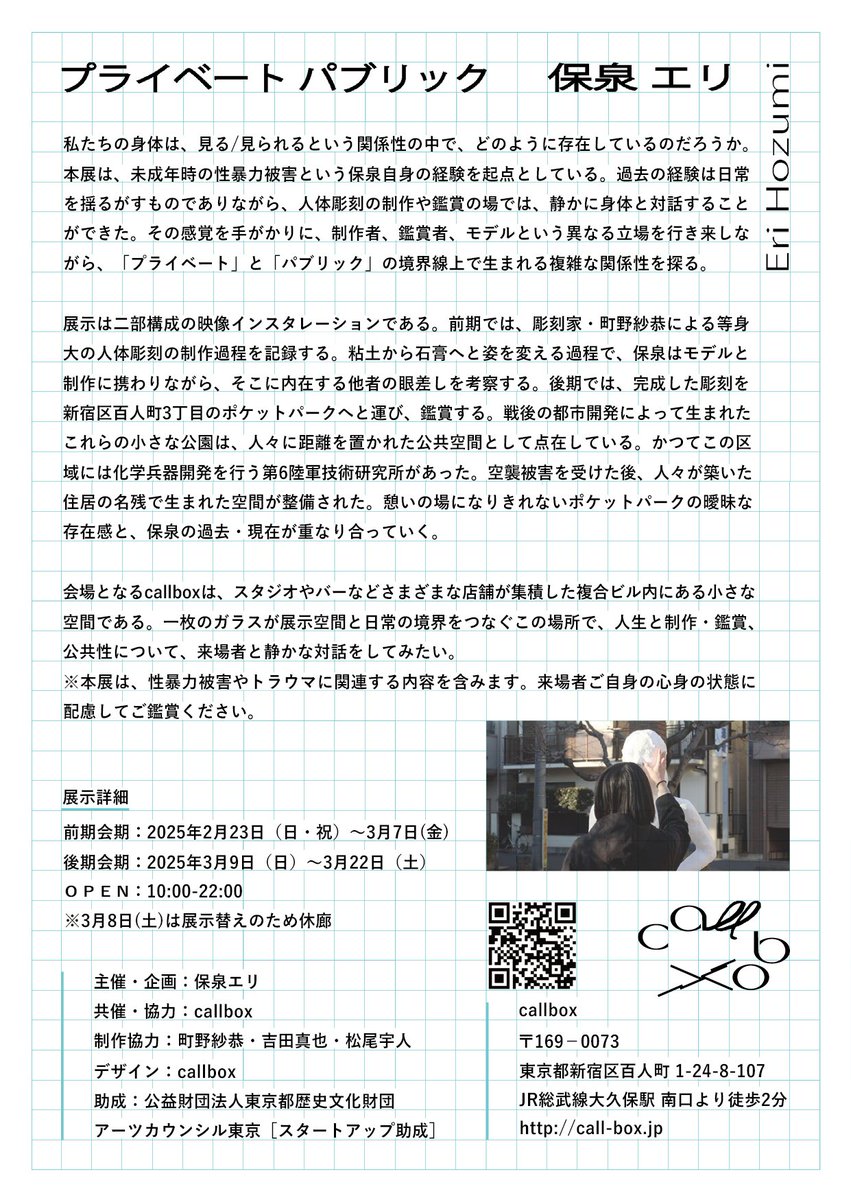 プライベート パブリック　保泉 エリ
Eri Hozumi
私たちの身体は、見る/見られるという関係性の中で、どのように存在しているのだろうか。
本展は、未成年時の性暴力被害という保泉自身の経験を起点としている。過去の経験は日常
を揺るがすものでありながら、人体彫刻の制作や鑑賞の場では、静かに身体と対話すること
ができた。その感覚を手がかりに、制作者、鑑賞者、モデルという異なる立場を行き来しな
がら、「プライベート」と「パブリック」の境界線上で生まれる複雑な関係性を探る。
展示は二部構成の映像インスタレーションである。前期では、彫刻家・町野紗恭による等身
大の人体彫刻の制作過程を記録する。粘土から石膏へと姿を変える過程で、保泉はモデルと
制作に携わりながら、そこに内在する他者の眼差しを考察する。後期では、完成した彫刻を
新宿区百人町3丁目のポケットパークへと運び、鑑賞する。戦後の都市開発によって生まれた
これらの小さな公園は、人々に距離を置かれた公共空間として点在している。かつてこの区
域には化学兵器開発を行う第6陸軍技術研究所があった。空襲被害を受けた後、人々が築いた
住居の名残で生まれた空間が整備された。憩いの場になりきれないポケットパークの曖昧な
存在感と、保泉の過去・現在が重なり合っていく。
会場となるcallboxは、スタジオやバーなどさまざまな店舗が集積した複合ビル内にある小さな
空間である。一枚のガラスが展示空間と日常の境界をつなぐこの場所で、人生と制作・鑑賞、
公共性について、来場者と静かな対話をしてみたい。
※本展は、性暴力被害やトラウマに関連する内容を含みます。来場者ご自身の心身の状態に
配慮してご鑑賞ください。
展示詳細
前期会期：2025年2月23日（日・祝）〜3月7日(金)
後期会期：2025年3月9日（日）〜3月22日（土）
ＯＰＥＮ：10:00-22:00
※3月8日(土)は展示替えのため休廊
主催・企画：保泉エリ
共催・協力：callbox
制作協力：町野紗恭・吉田真也・松尾宇人
デザイン：callbox
助成：公益財団法人東京都歴史文化財団
アーツカウンシル東京［スタートアップ助成］
call box
callbox
〒169－0073
東京都新宿区百人町 1-24-8-107
JR総武線大久保駅 南口より徒歩2分
http://call-box.jp